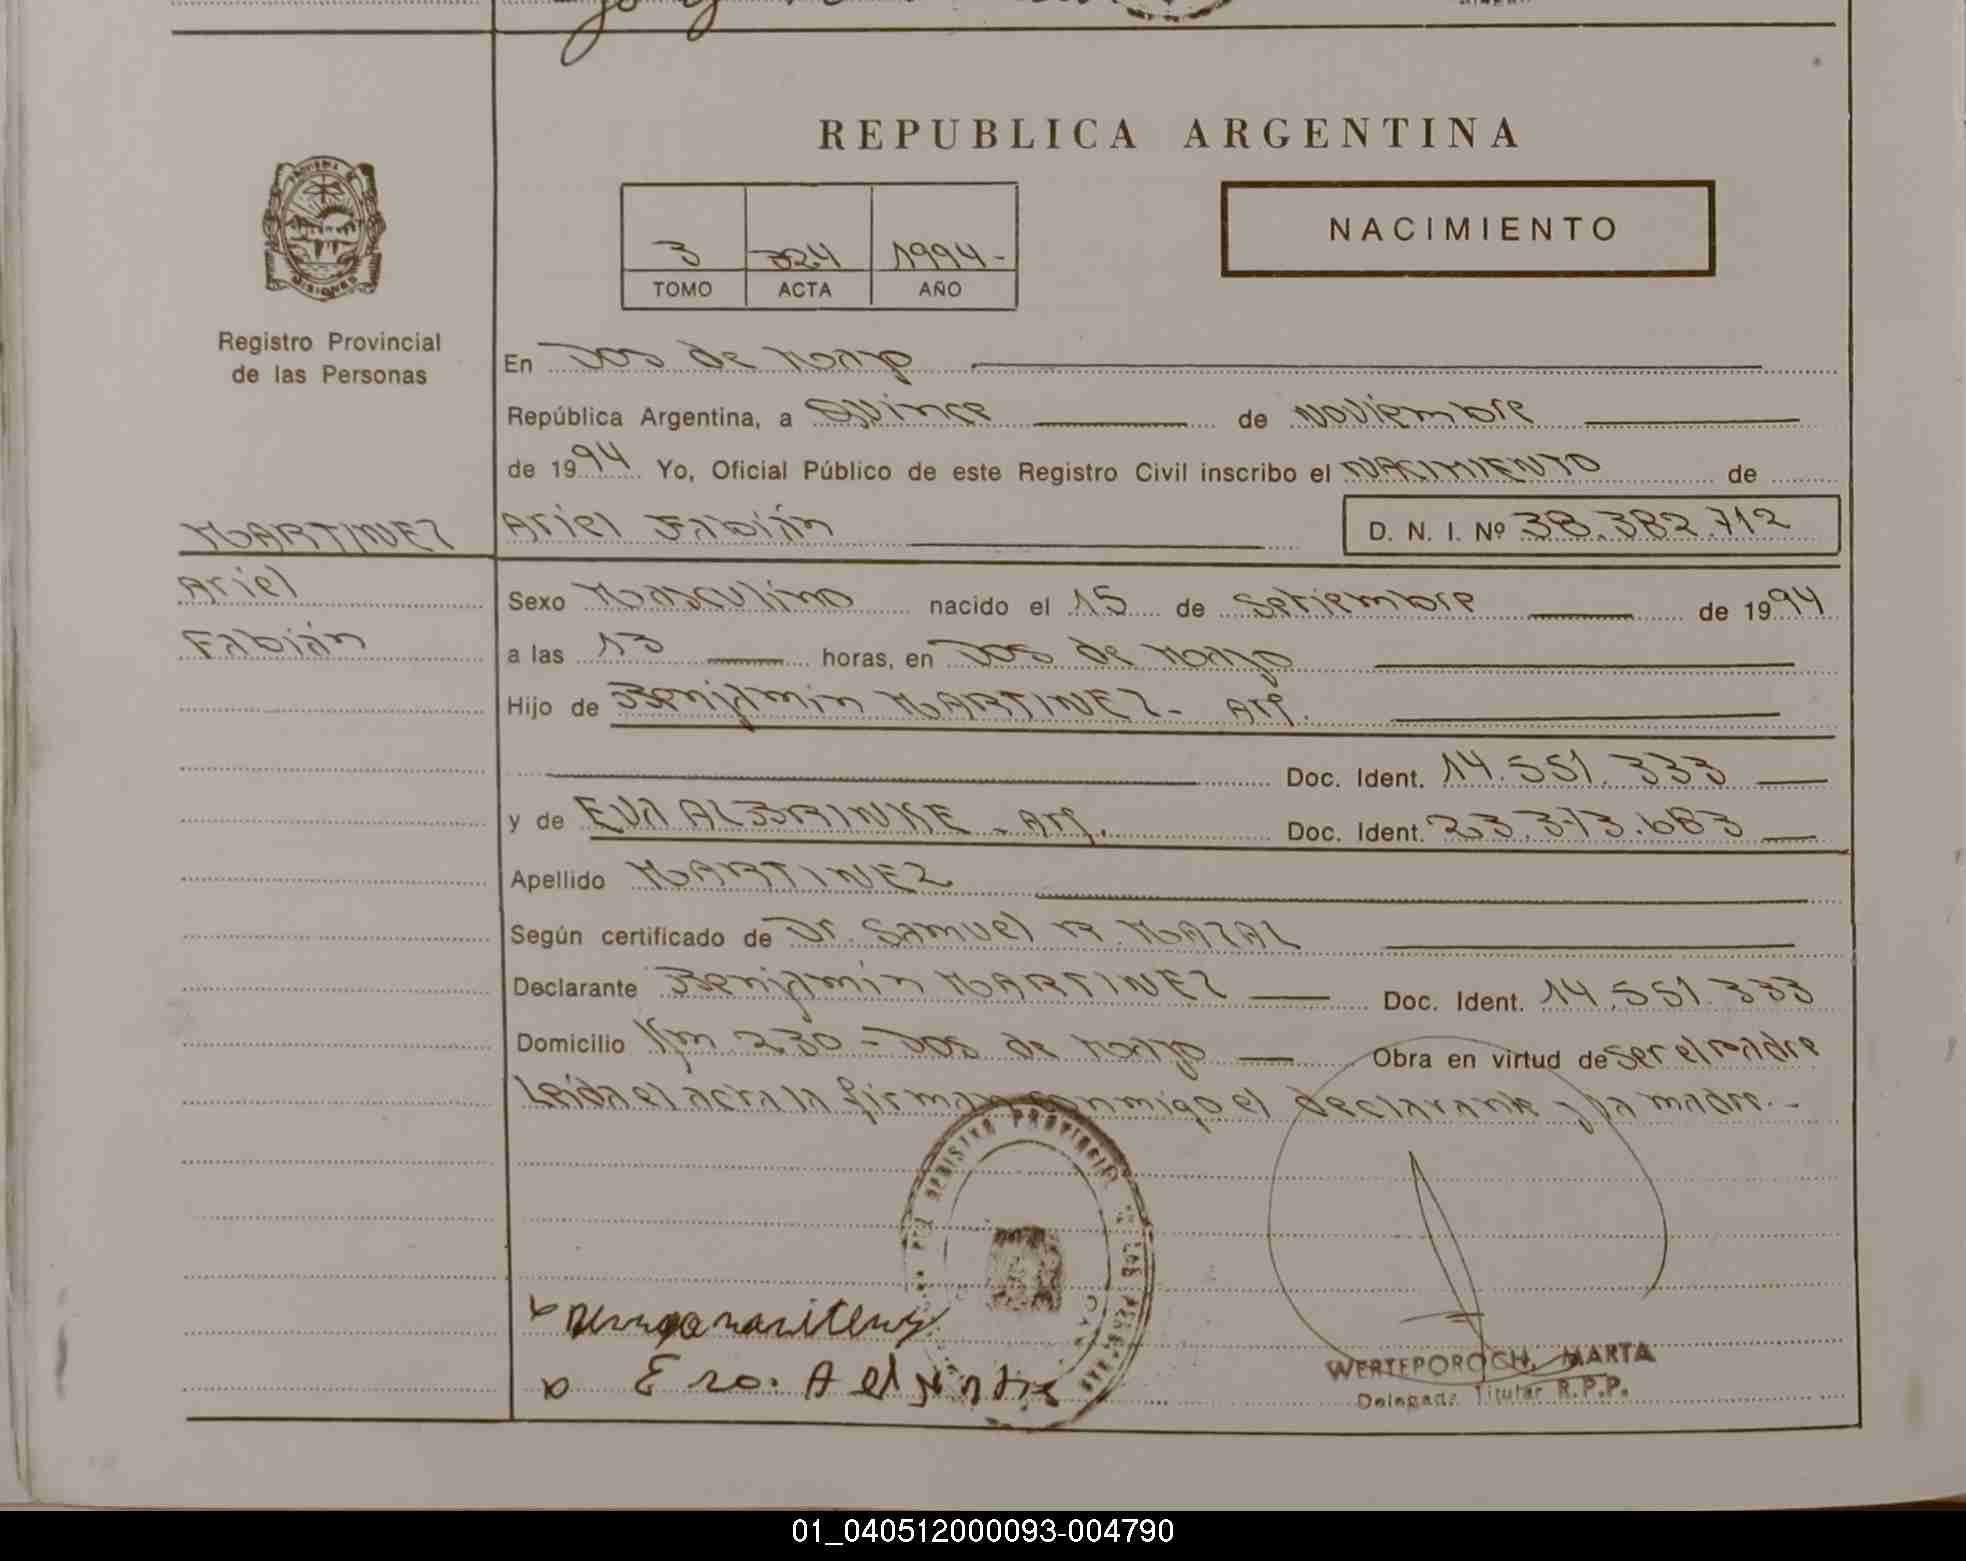 REPUBLICA ARGENTINA
PROVINCIA DE MISIONES
NACIMIENTO
3 324 1994-
TOMO ACTA AÑO
Registro Provincial
de las Personas
En Dos de Mayo
República Argentina, a Quince de Noviembre
de 1994 Yo, Oficial Público de este Registro Civil inscribo el NACIMIENTO de
MARTINEZ
Ariel
Fabián
Ariel Fabián D. N. I. Nº 38.382.712
Sexo Masculino nacido el 15 de Setiembre de 1994
a las 13 horas, en Dos de Mayo
Hijo de Benjamin MARTINEZ- Arg.
Doc. Ident. 14.551.333
y de EVA ALBRINKE - Arg. Doc. Ident. 23.373.683
Apellido MARTINEZ
Según certificado de Dr. Samuel R. MAZAL
Declarante Benjamin MARTINEZ Doc. Ident. 14.551.333
Domicilio Km 230 - Dos de Mayo Obra en virtud de ser el padre
Leida el acta la firman conmigo el declarante y la madre.-
REGISTRO PROVINCIAL DE LAS PERSONAS
WERTEPOROCH, MARTA
Delegada Titular R.P.P.
01_040512000093-004790